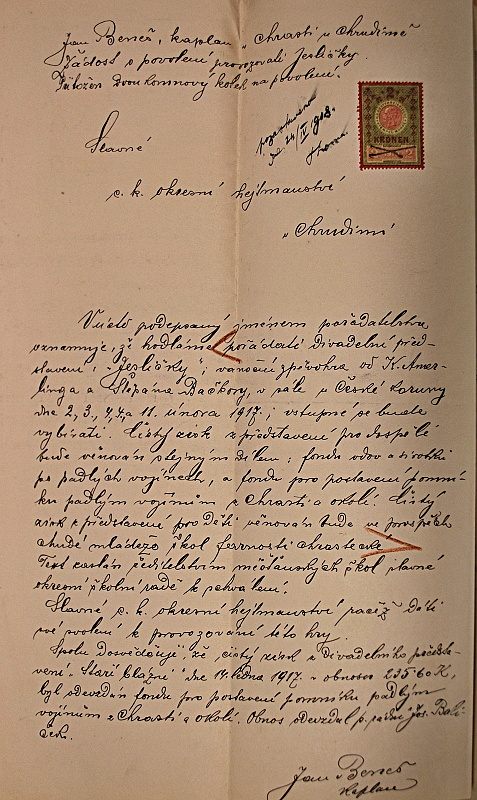 Jan Beneš, kaplan v Chrasti u Chrudimě
Žádost o povolení provozovati Jesličky.
Přiložen dvoukorunový kolek na povolení.
2
KRONEN
Slavné
c. k. okresní hejtmanství
v Chrudimi
V úctě podepsaný jménem pořadatelstva
oznamuje, že hodláme pořádati divadelní před-
stavení: „Jesličky“; vánoční zpěvohra od K. Amer-
linga a Štěpána Bačkory, v sále u České koruny
dne 2, 3, 4, a 11. února 1917; vstupné se bude
vybírati. Čistý zisk z představení pro dospělé
bude věnován stejným dílem: fondu vdov a sirotků
po padlých vojínech, a fondu pro postavení pomní-
ku padlým vojínům z Chrasti a okolí. Čistý
zisk z představení pro děti věnován bude ve prospěch
chudé mládeže škol chrastecké
Text zaslán ředitelstvím měšťanských škol slavné
okresní školní radě k schválení.
Slavné c. k. okresní hejtmanství račiž dáti
své svolení k provozování této hry.
Spolu dosvědčuji, že čistý zisk z divadelního předsta-
vení „Staří blázni“ dne 14. ledna 1917 v obnosu 235·60 K,
byl odevzdán fondu pro postavení pomníku padlým
vojínům z Chrasti a okolí. Obnos odevzdal p. radní Jos.
Jan Beneš
kaplan